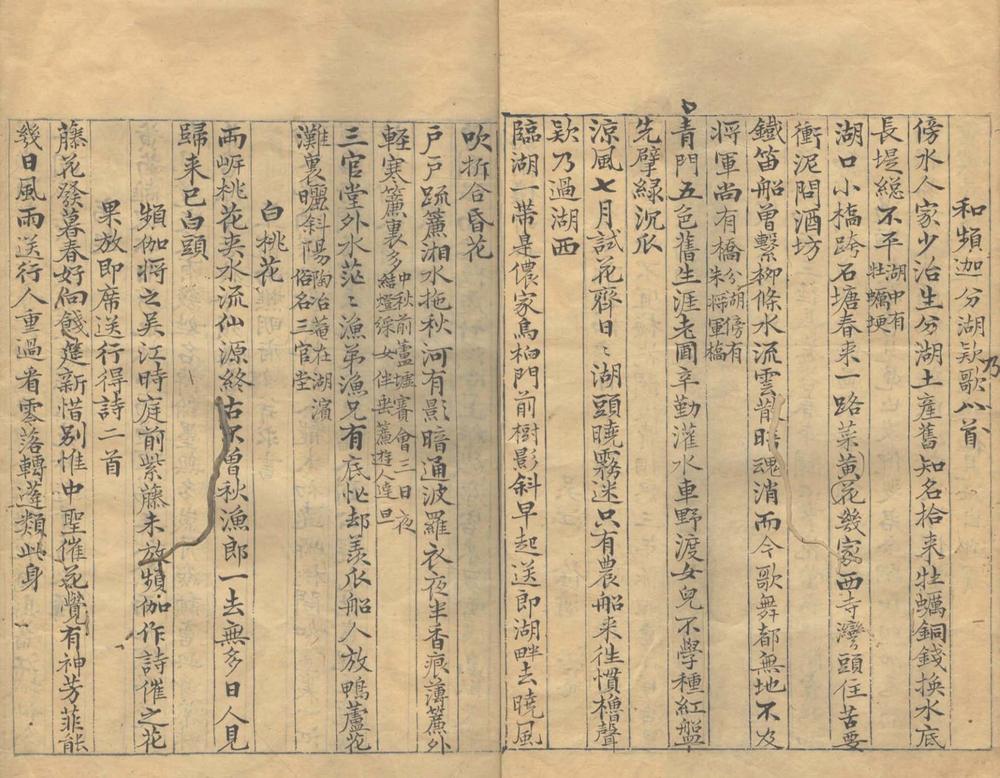 和頻迦分湖欵乃歌八首
傍水人家少治生分湖土產舊知名拾来牡蠣銅錢换水底
長堤緫不平湖中有牡蠣埂
湖口小橋跨石塘春来一路菜黄花幾家西寺灣頭住苦要
衝泥問酒坊
鐵笛船曽繫柳條水流雲散暗魂消而今歌舞都無地不及
将軍尚有橋分湖傍有朱将軍橋
青門五色舊生涯老圃辛勤灌水車野渡女兒不學種紅盤
先擘緑沉瓜
凉風七月試花齊日〻湖頭曉霧迷只有農船来往慣櫓聲
欵乃過湖西
臨湖一帶是儂家烏桕門前樹影斜早起送郎湖畔去曉風
吹折合昏花
戸戸疏簾湘水拖秋河有影暗通波羅衣夜半香痕薄簾外
軽寒簾裏多中秋前蘆墟賽會三日夜結燈綵女伴垂簾遊人達旦
三官堂外水茫〻漁弟漁兄有底忙却羡瓜船人放鴨蘆花
灘裏曬斜陽陶冶菴在湖濱俗名三官堂
白桃花
兩岍桃花夹水流仙源終古不曽秋漁郎一去無多日人見
歸来已白頭
頻伽将之吴江時庭前紫藤未放頻伽作詩催之花
果放即席送行得詩二首
藤花發暮春好向餞筵新惜别惟中聖摧花覺有神芳菲能
幾日風雨送行人重過看零落轉蓬類此身